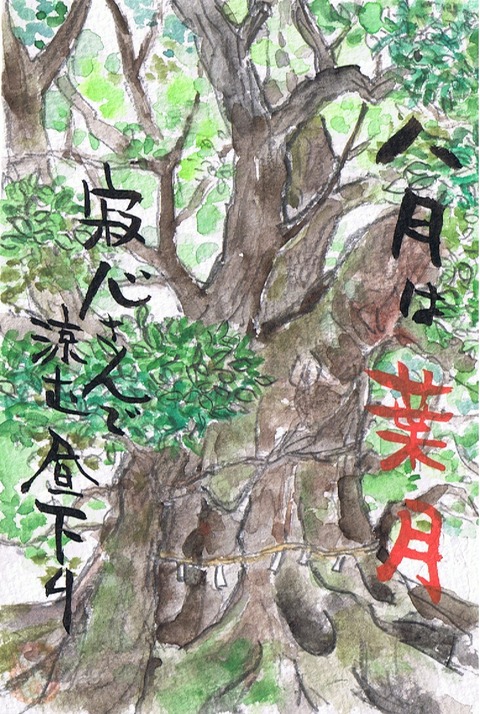 八月は
葉月
寂心さんで
涼む昼下り